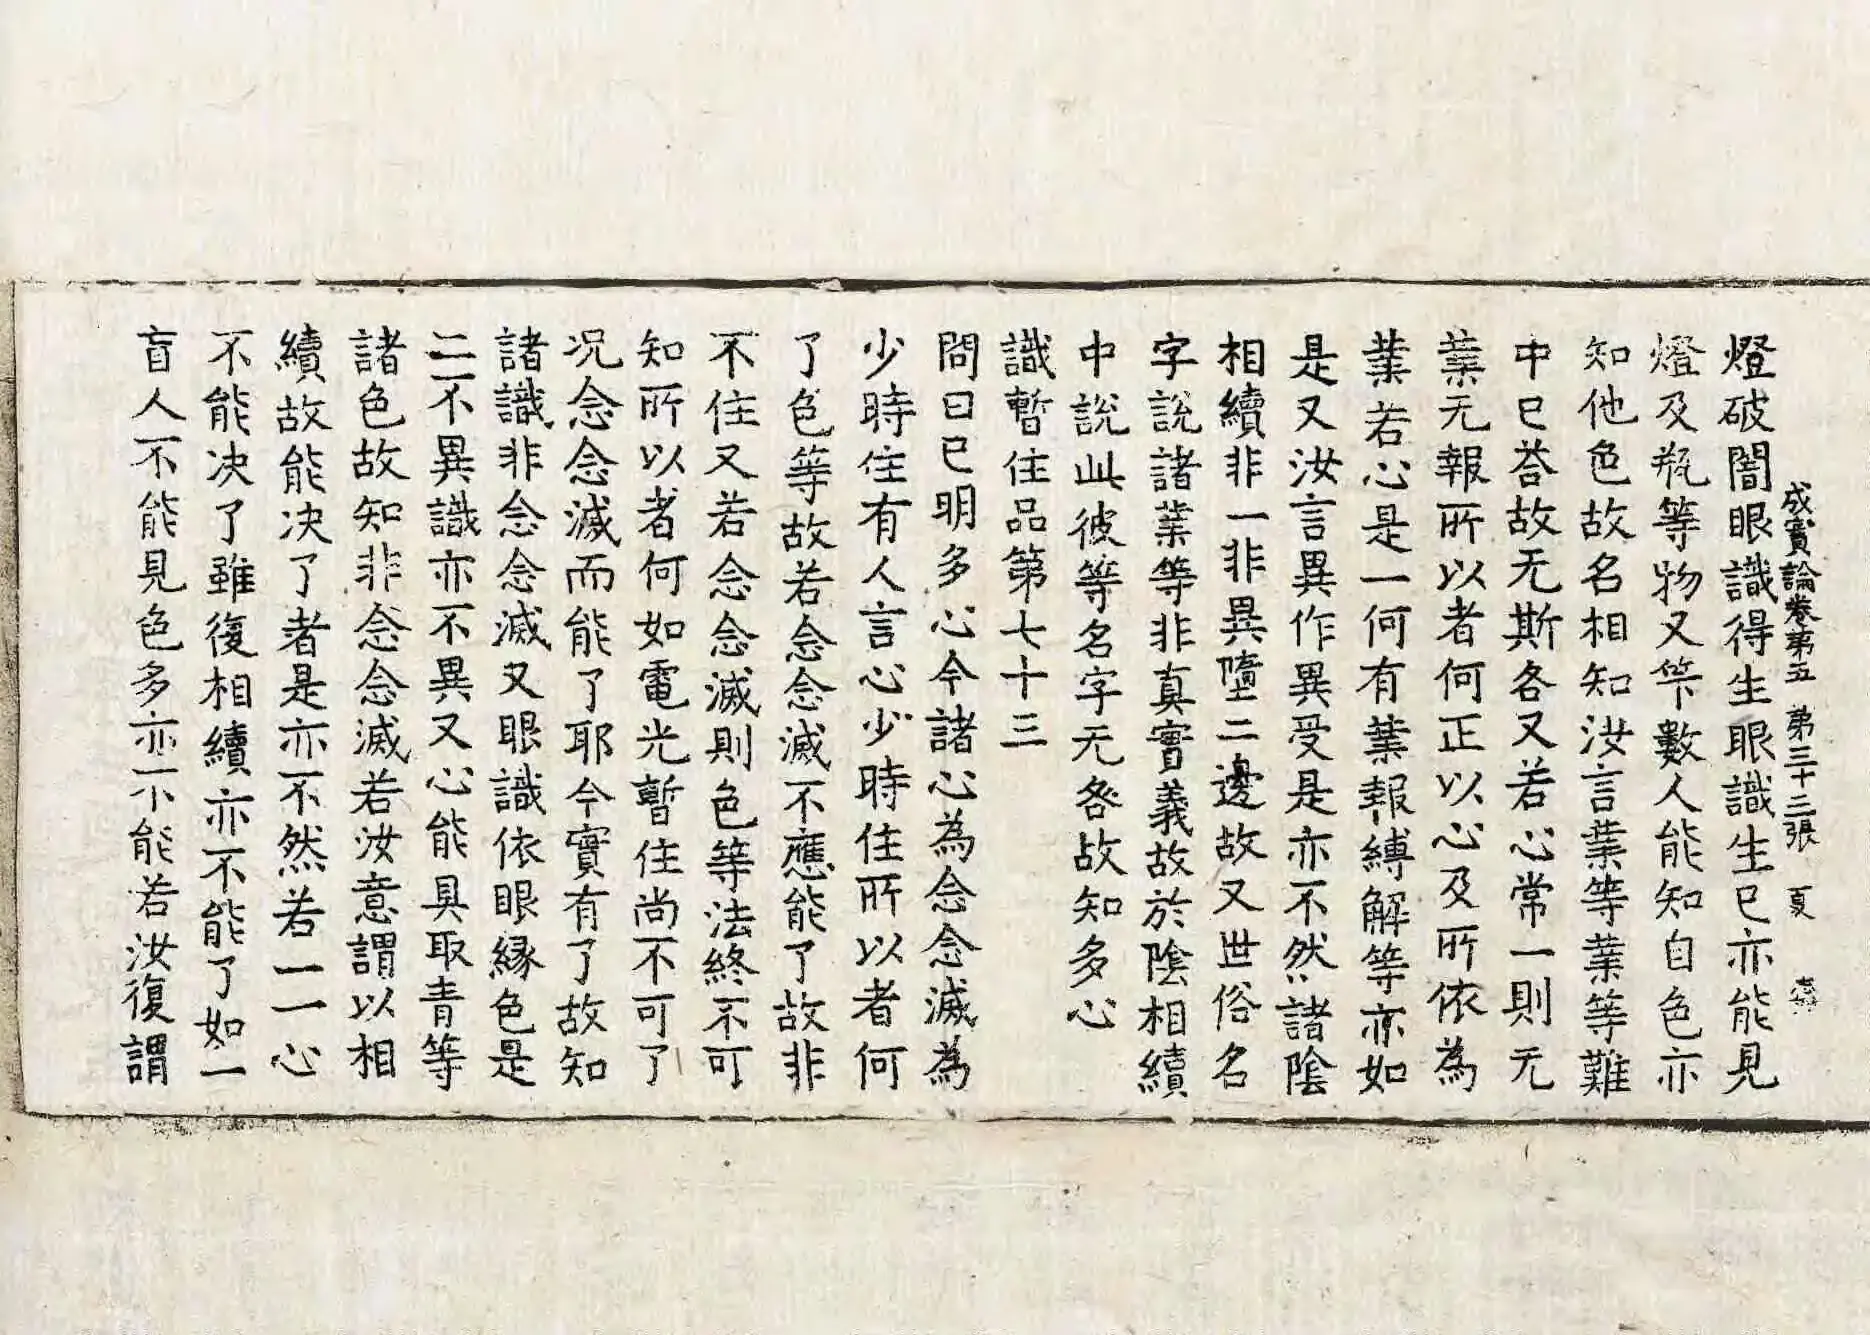 成實論卷第五 第三十三張 夏
燈破闇眼識得生眼識生已亦能見
燈及瓶等物又筭數人能知自色亦
知他色故名相知汝言業等業等難
中已荅故无斯咎又若心常一則无
業无報所以者何正以心及所依為
業若心是一何有業報縛解等亦如
是又汝言異作異受是亦不然諸陰
相續非一非異墮二邊故又世俗名
字說諸業等非真實義故於陰相續
中說此彼等名字无咎故知多心
識暫住品第七十三
問曰已明多心今諸心為念念滅為
少時住有人言心少時住所以者何
了色等故若念念滅不應能了故非
不住又若念念滅則色等法終不可
知所以者何如電光暫住尚不可了
况念念滅而能了耶今實有了故知
諸識非念念滅又眼識依眼縁色是
二不異識亦不異又心能具取青等
諸色故知非念念滅若汝意謂以相
續故能決了者是亦不然若一一心
不能決了雖復相續亦不能了如一
盲人不能見色多亦不能若汝復謂